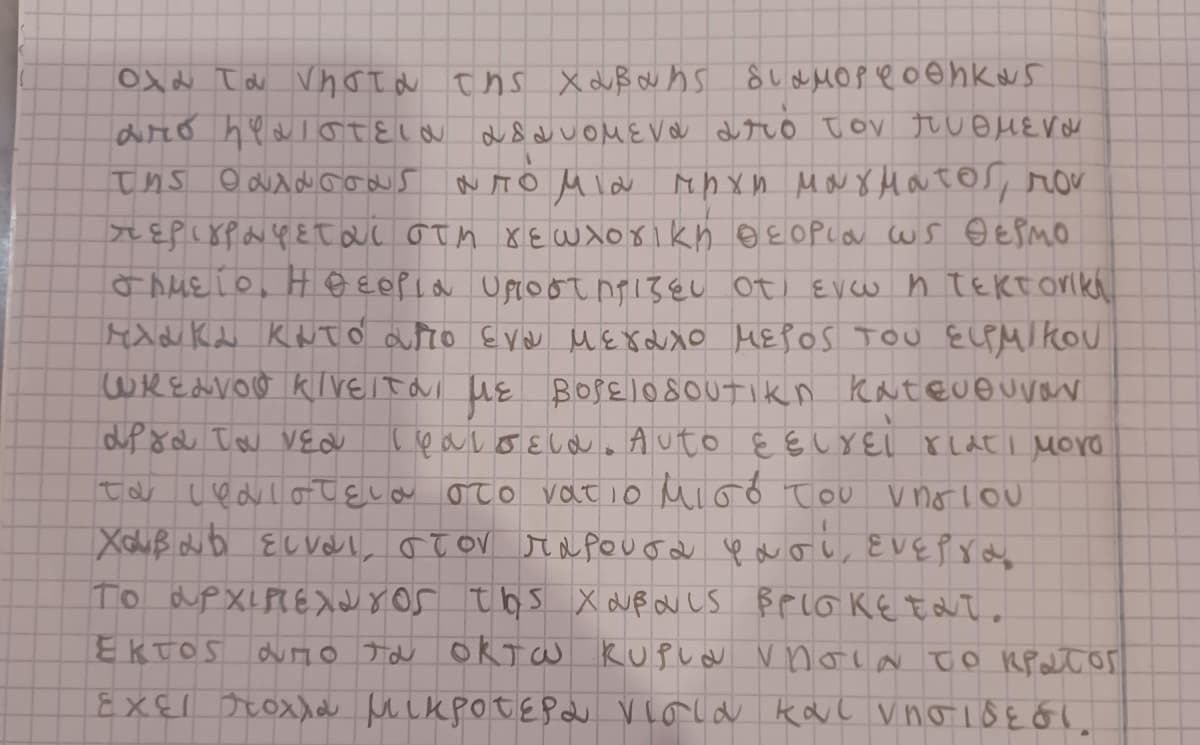 ολα τα νηστα της χαβαης διαμορφοθηκας
από ηφαιστεια αδαυομενα από τον πυθμενα
της θαλασσας από μια πηγη μαγματος, που
περιγραφεται στη γεωλογικη θεορια ως θερμο
σημείο. Η θεορια υποστηριζει οτι ενω η τεκτονικη
πλακα κατό απο ενα μεγαλο μερος του ειρμικου
ωκεανου κινειται με βορειοδουτικη κατευθυναν
αργα τα νεα ιφαισεια. Αυτο εξιγεί γιατι μονο
τα ιφαιστεια στο νατιο μισό του νησιου
Χαβαδ ειναι, στον παρουσα φασί, ενεργα.
το αρχιπελαγος της χαβαις βρισκεται.
Εκτος απο τα οκτω κυρια νησια το κρατος
εχει πολλα μικροτερα νισια και νησιδεσι.